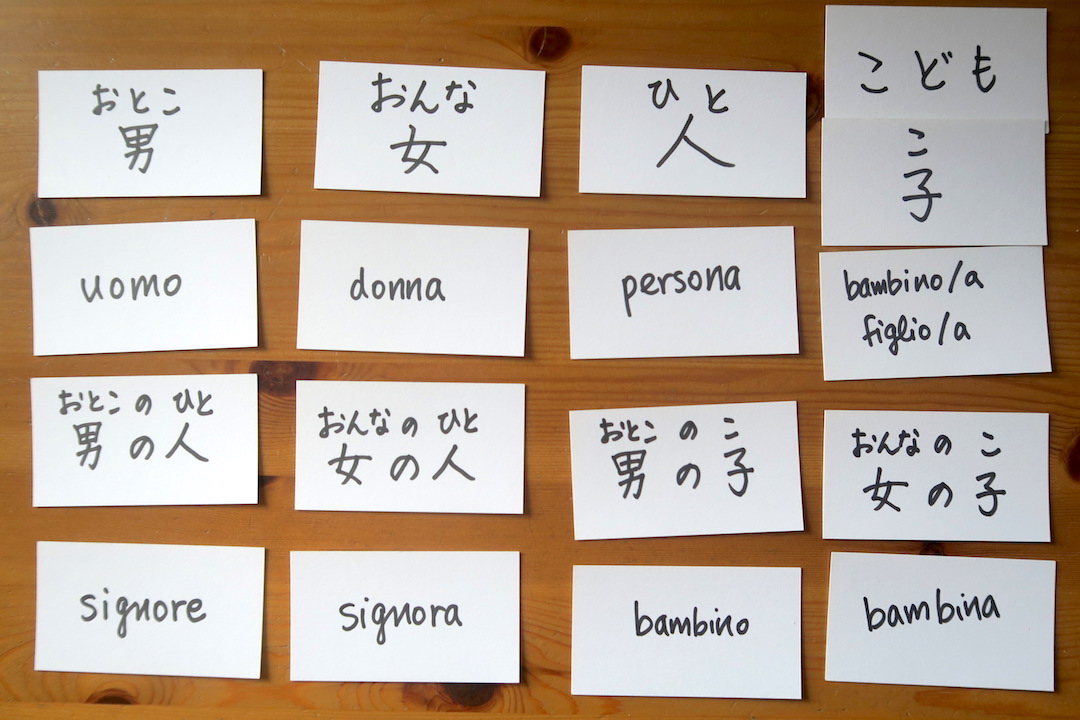 おとこ
男
おんな
女
ひと
人
こども
こ
子
uomo
donna
persona
bambino/a
figlio/a
おとこ の ひと
男 の 人
おんな の ひと
女 の 人
おとこ の こ
男 の 子
おんな の こ
女 の 子
signore
signora
bambino
bambina